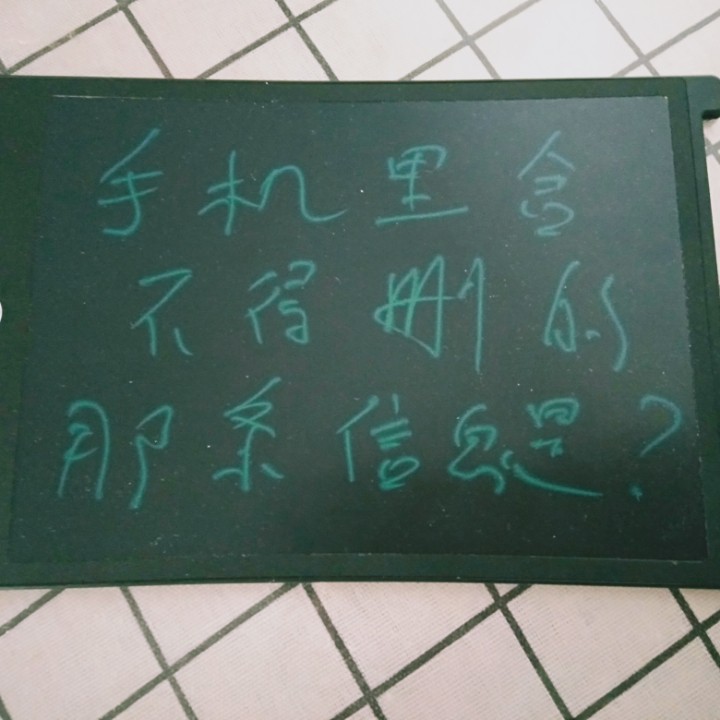 手机里舍
不得删的
那条信息是?